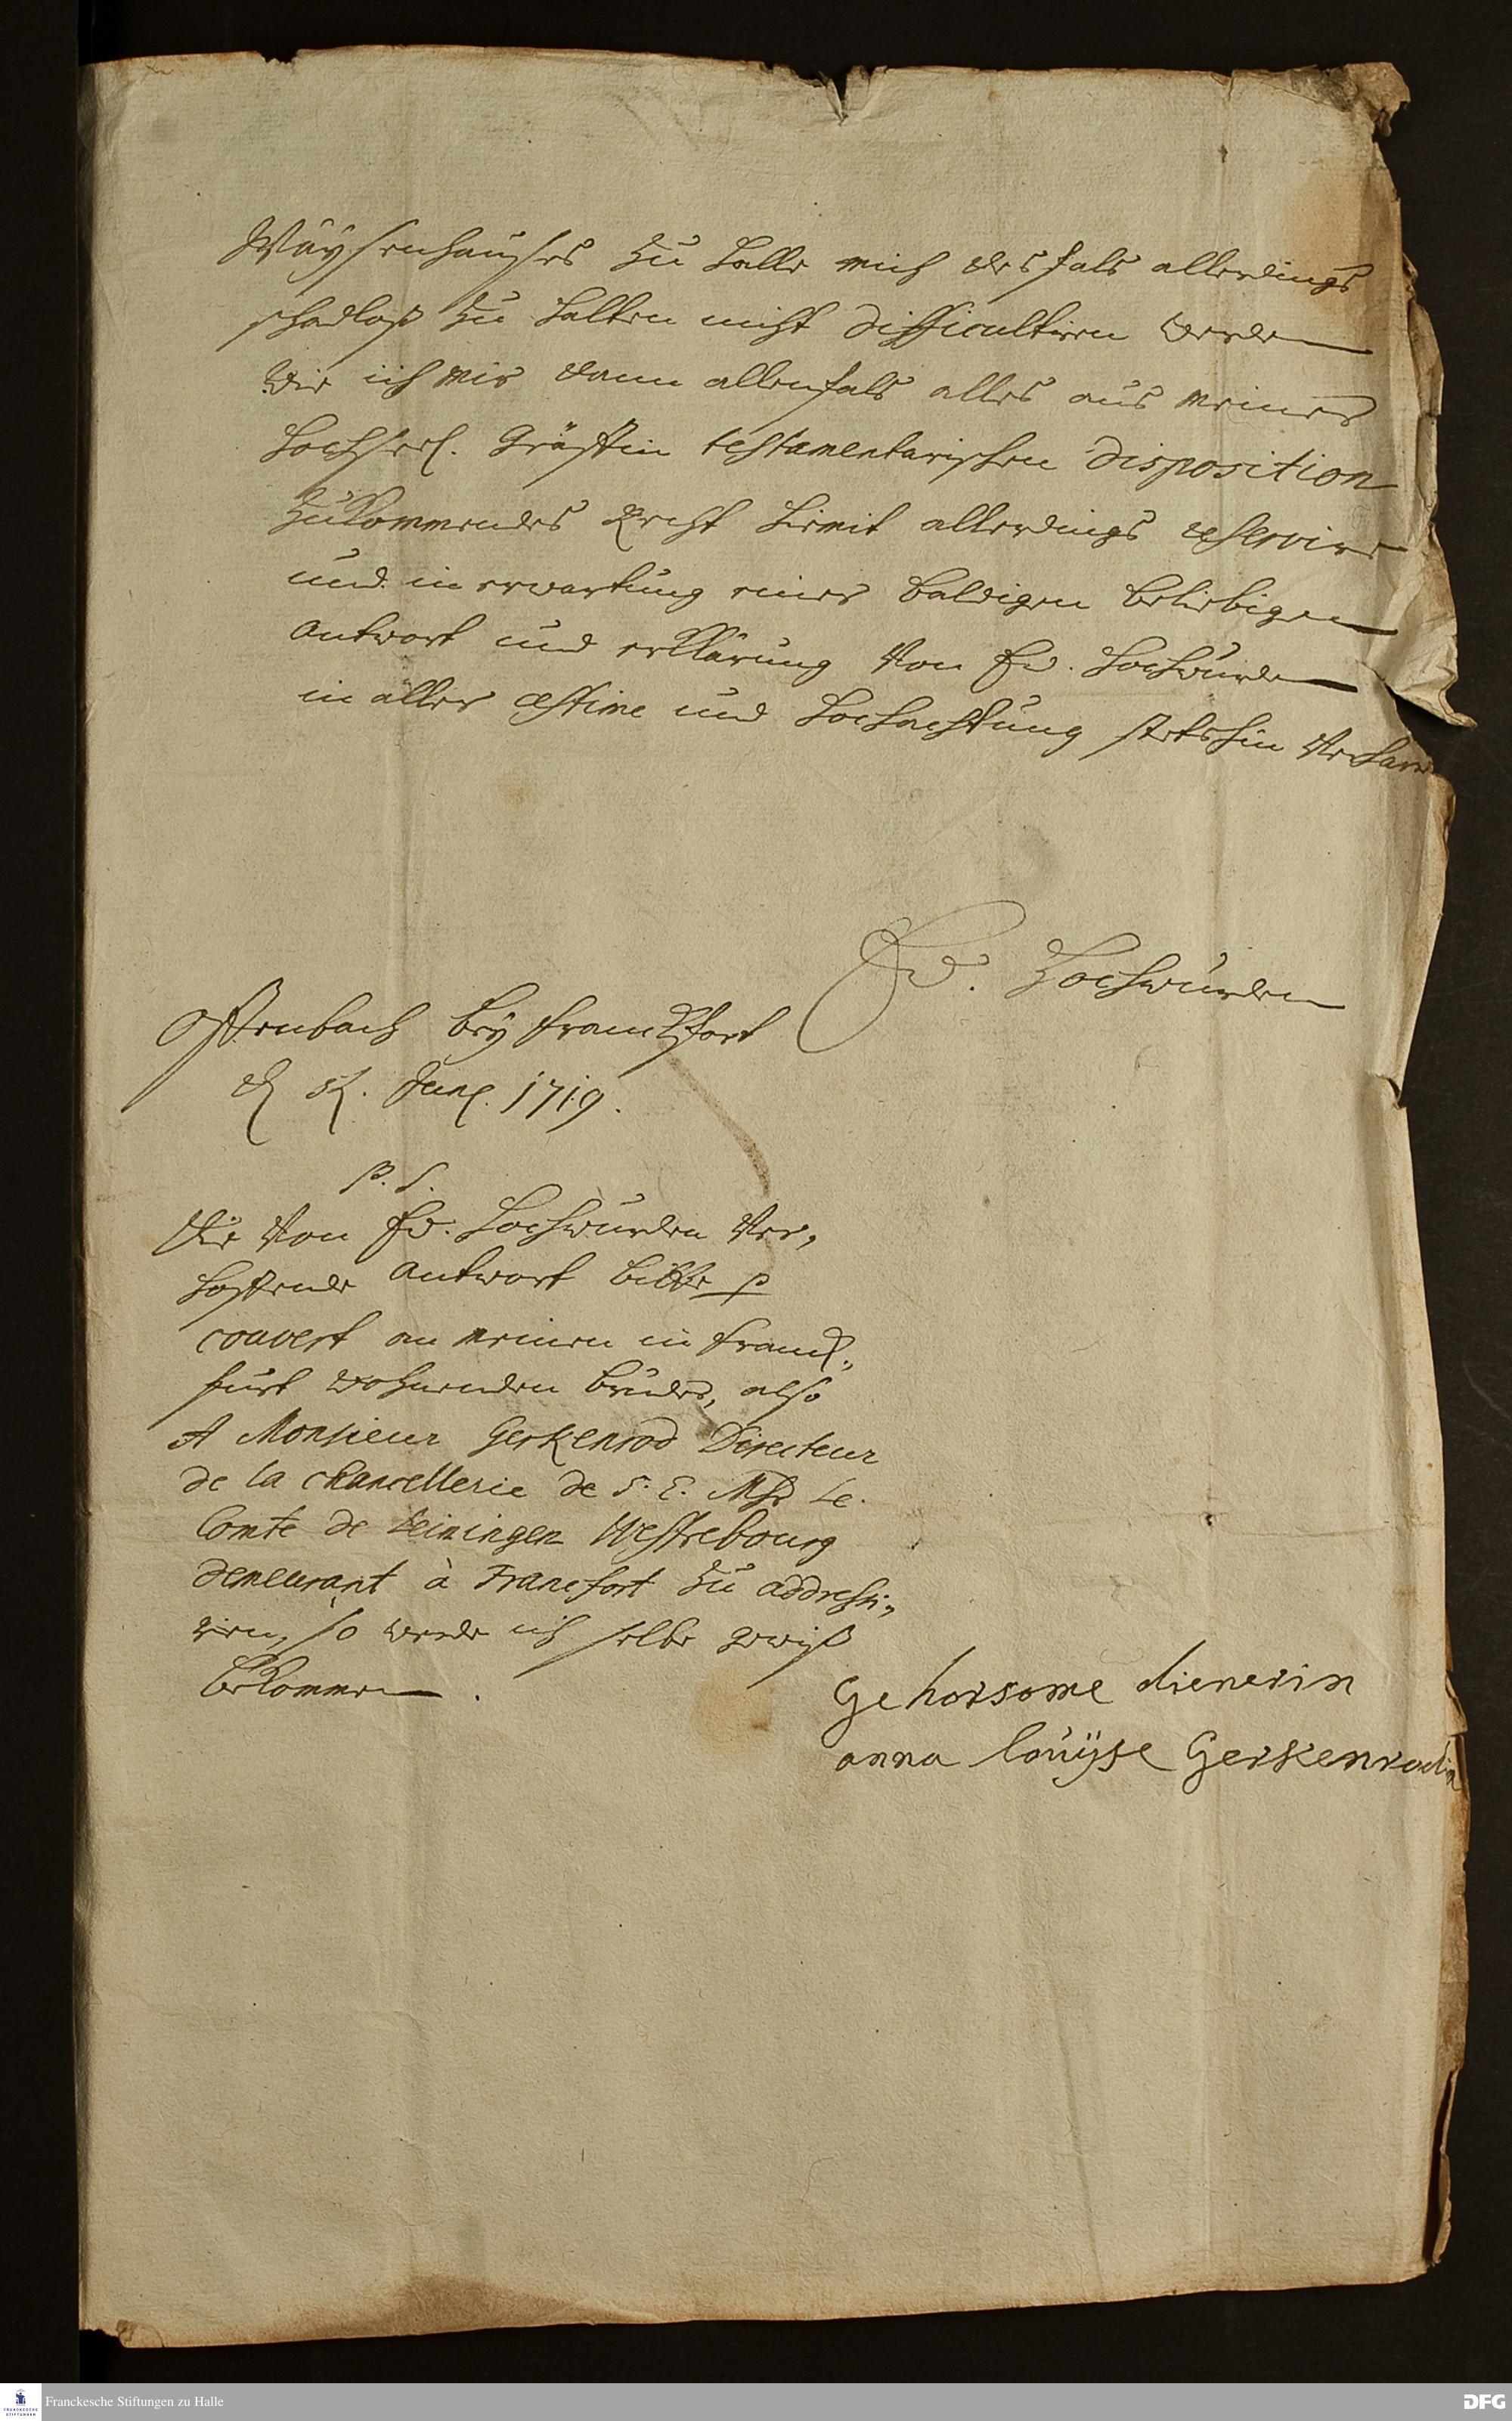 Waÿsenhaußes zu Halle mich desfals allerdings
schadloß zu halten nicht difficultiren werden
Wie ich mir dann allenfals alles aus meiner
Hochseel. Gräffin testamentarischen disposition
zukommendes Recht hiemit allerdings reservire
und in erwartung einer baldigen beliebigen
Antwort und erklärung Von Ew. Hochwürden
in aller Estime und Hochachtung stetshin Verharre
Ew. Hochwürden
Offenbach beÿ Franckfort
Junÿ. 1719.
P. S.
Die Von Ew. Hochwürden Ver,
hoffende Antwort bitte p
couvert an meinen in Franck,
furt wohnenden bruder, also
A Monsieur Gerkenrod Directeur
de la chancellerie de S. E. Msr Le
Comte de Leiningen Westrebourg
demeurant à Francfort zu addressi,
ren, so werde ich selbe gewiß
bekommen.
Gehorsame dienerin
anna louÿse Gerkenrodin
Franckesche Stiftungen zu Halle
DFG